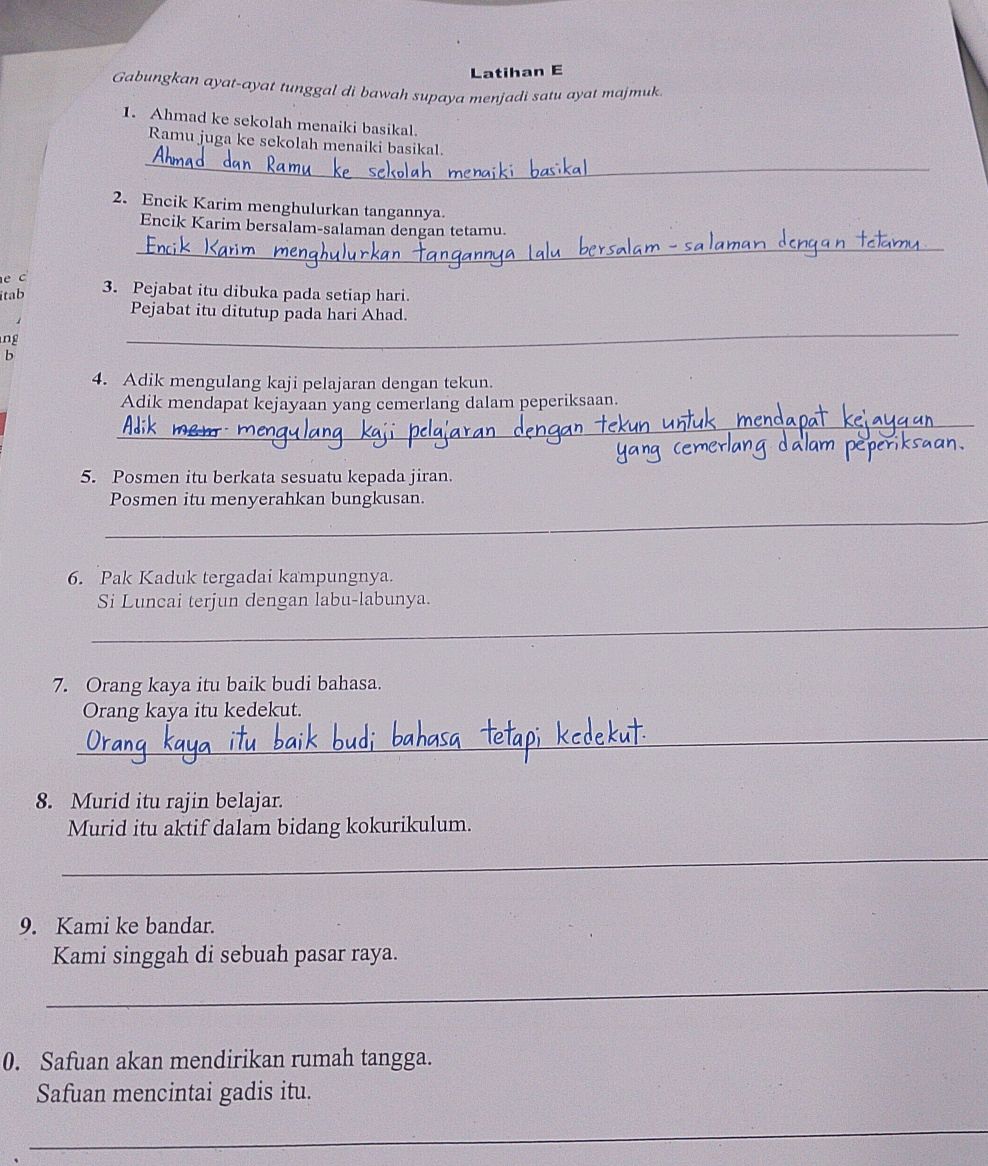 Latihan E
Gabungkan ayat-ayat tunggal di bawah supaya menjadi satu ayat majmuk.
1. Ahmad ke sekolah menaiki basikal.
Ramu juga ke sekolah menaiki basikal.
Ahmad dan Ramu ke sekolah menaiki basikal
2. Encik Karim menghulurkan tangannya.
Encik Karim bersalam-salaman dengan tetamu.
Encik Karim menghulurkan tangannya lalu bersalam-salaman dengan tetamu.
e c
itab
ng
b
3. Pejabat itu dibuka pada setiap hari.
Pejabat itu ditutup pada hari Ahad.
4. Adik mengulang kaji pelajaran dengan tekun.
Adik mendapat kejayaan yang cemerlang dalam peperiksaan.
Adik mengulang kaji pelajaran dengan tekun untuk mendapat kejayaan
yang cemerlang dalam peperiksaan.
5. Posmen itu berkata sesuatu kepada jiran.
Posmen itu menyerahkan bungkusan.
6. Pak Kaduk tergadai kampungnya.
Si Luncai terjun dengan labu-labunya.
7. Orang kaya itu baik budi bahasa.
Orang kaya itu kedekut.
Orang kaya itu baik budi bahasa tetapi kedekut.
8. Murid itu rajin belajar.
Murid itu aktif dalam bidang kokurikulum.
9. Kami ke bandar.
Kami singgah di sebuah pasar raya.
0. Safuan akan mendirikan rumah tangga.
Safuan mencintai gadis itu.